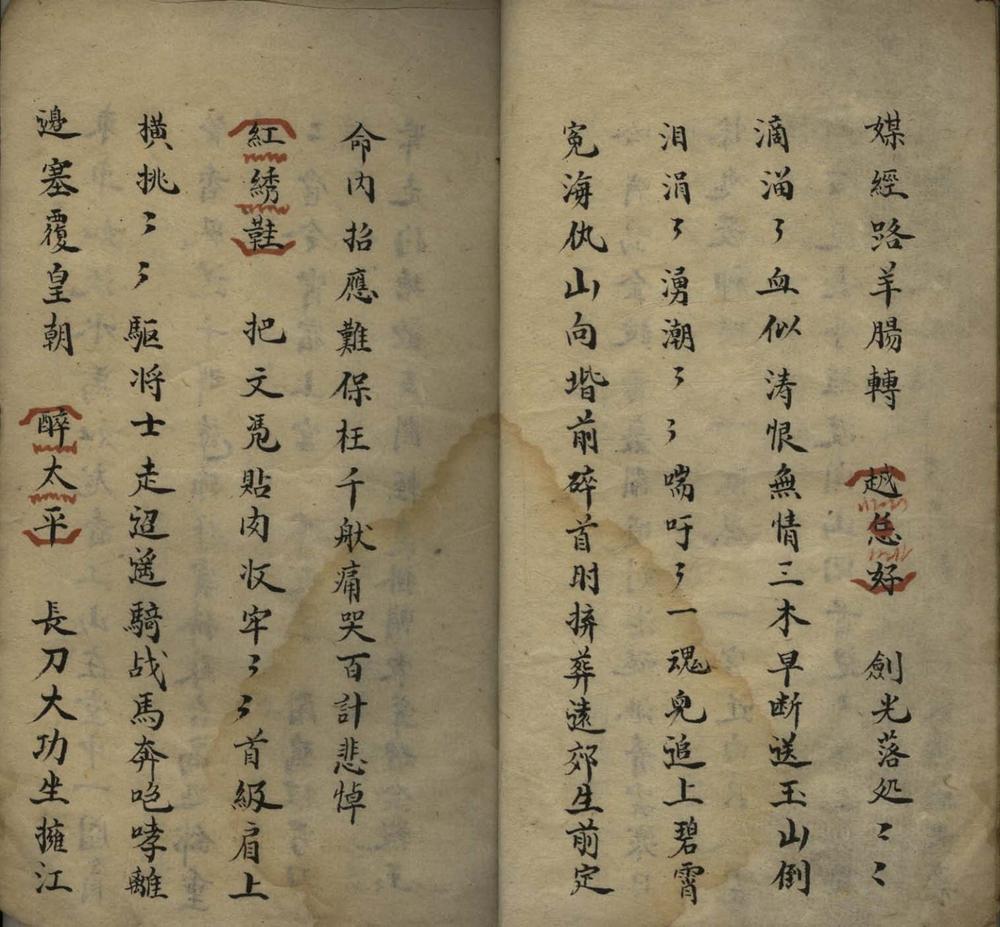 媒經路羊腸轉 越恁好 劍光落処〻〻
滴溜〻血似涛恨無情三木早断送玉山倒
泪涓〻湧潮〻〻喘吁〻一魂児追上碧霄
寃海仇山向堦前碎首肘擠葬遠郊生前定
命内招應難保枉千般痛哭百計悲悼
紅綉鞋 把文凴貼肉收牢〻〻首級肩上
横挑〻〻駆将士走迢遥騎战馬奔咆哮離
邊塞覆皇朝 醉太平 長刀大功坐擁江